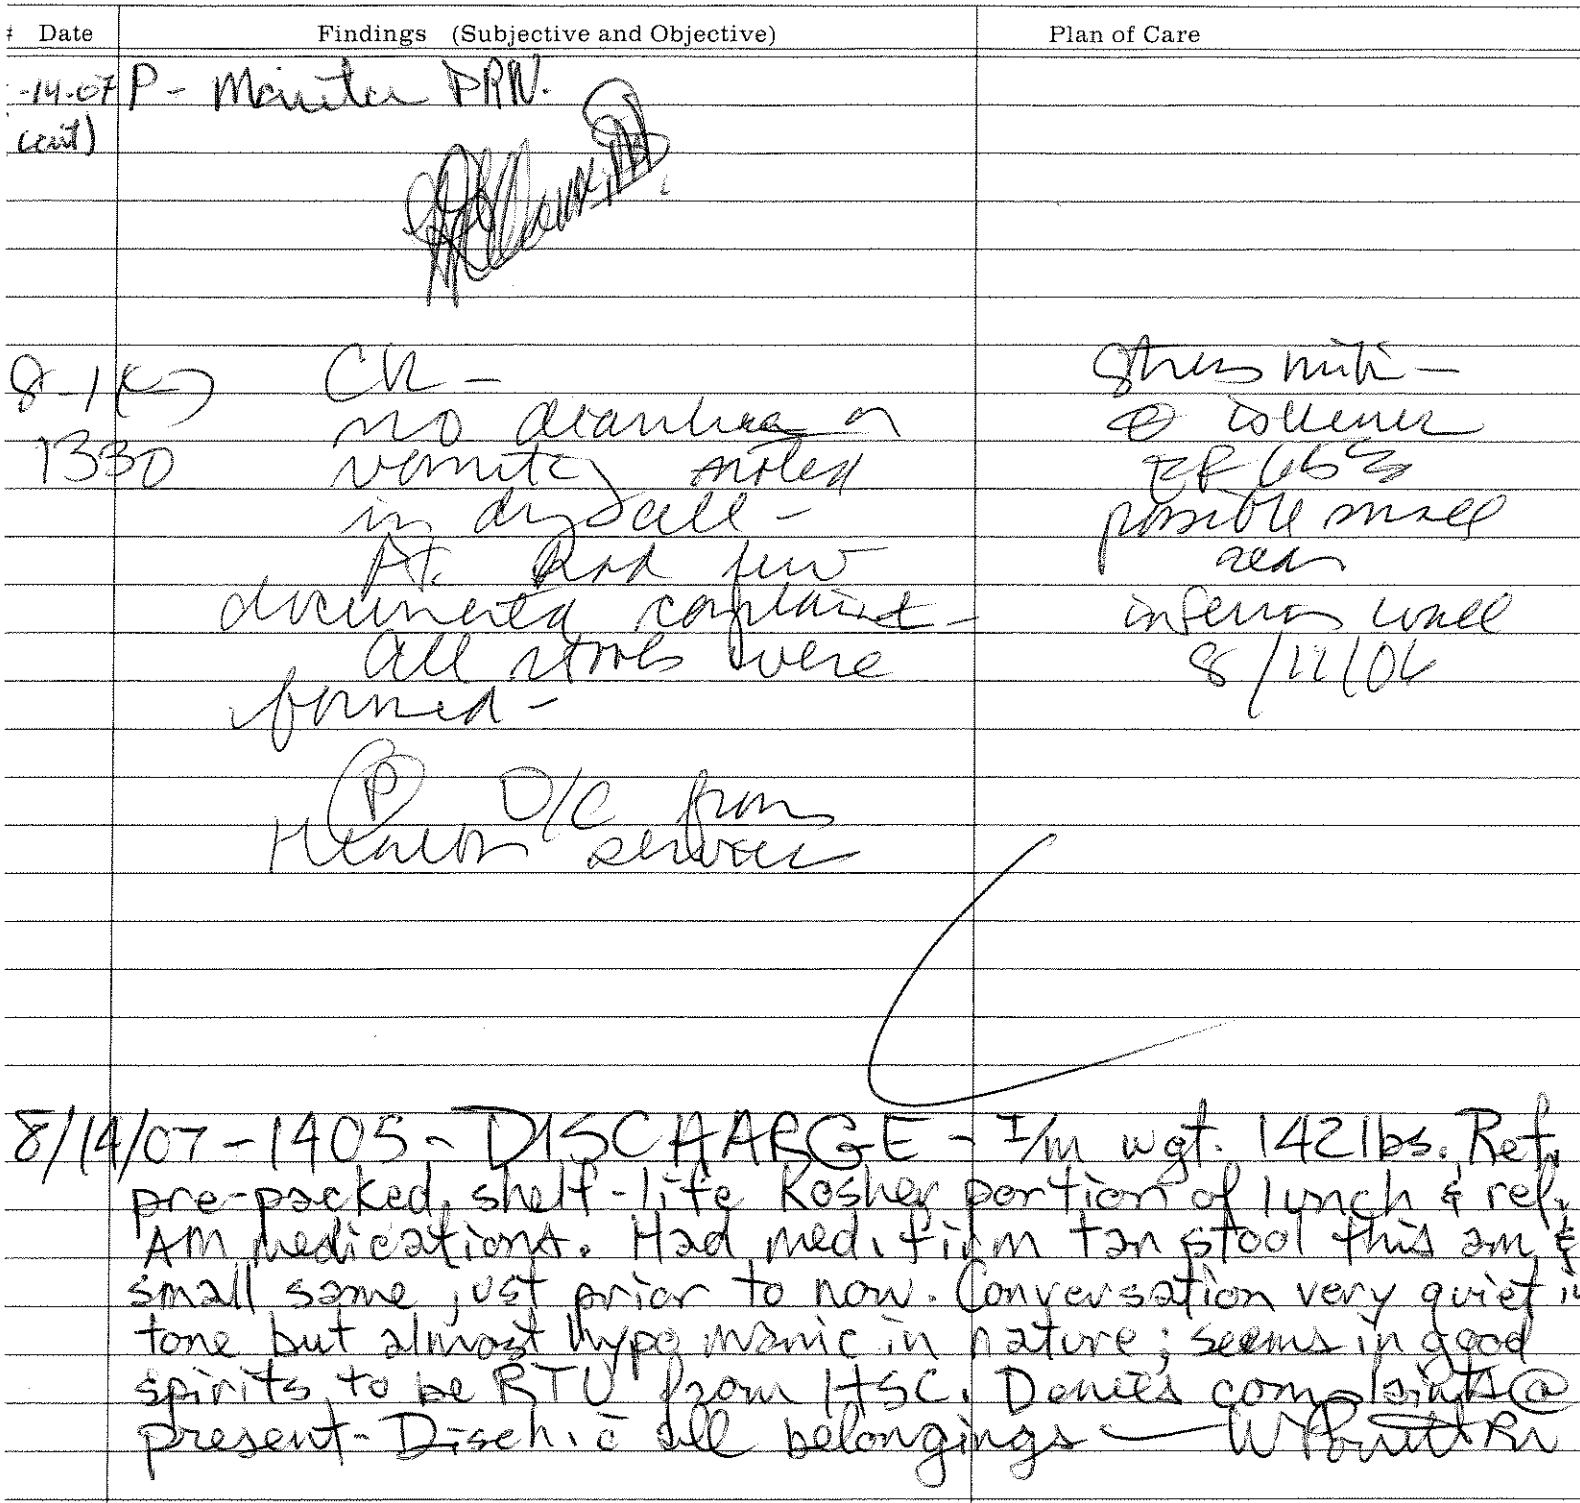 Date Findings (Subjective and Objective) Plan of Care
-14-07 P - Monitor PRN.
(cont)
8-1
1330
no diarrhea or
vomiting noted
in dry cell -
Pt. had few
documented complaint -
all stools were
formed -
Ⓟ D/C from
Health services
Stress
EF 65%
possible small
inferior wall
8/11/06
8/14/07 - 1405 - DISCHARGE - I/m wgt. 142 lbs. Ref.
pre-packed, shelf-life Kosher portion of lunch & ref.
AM medications. Had med. firm tan stool this am &
small same just prior to now. Conversation very quiet in
tone but almost hypomanic in nature; seems in good
spirits to be RTU from HSC. Denies complaints @
present - Disch. c̄ all belongings — W RN